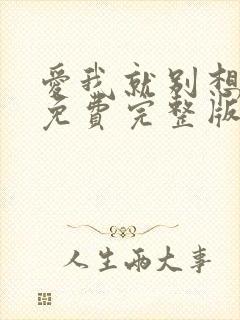 愛我就别想
免費完整版
人生兩大事